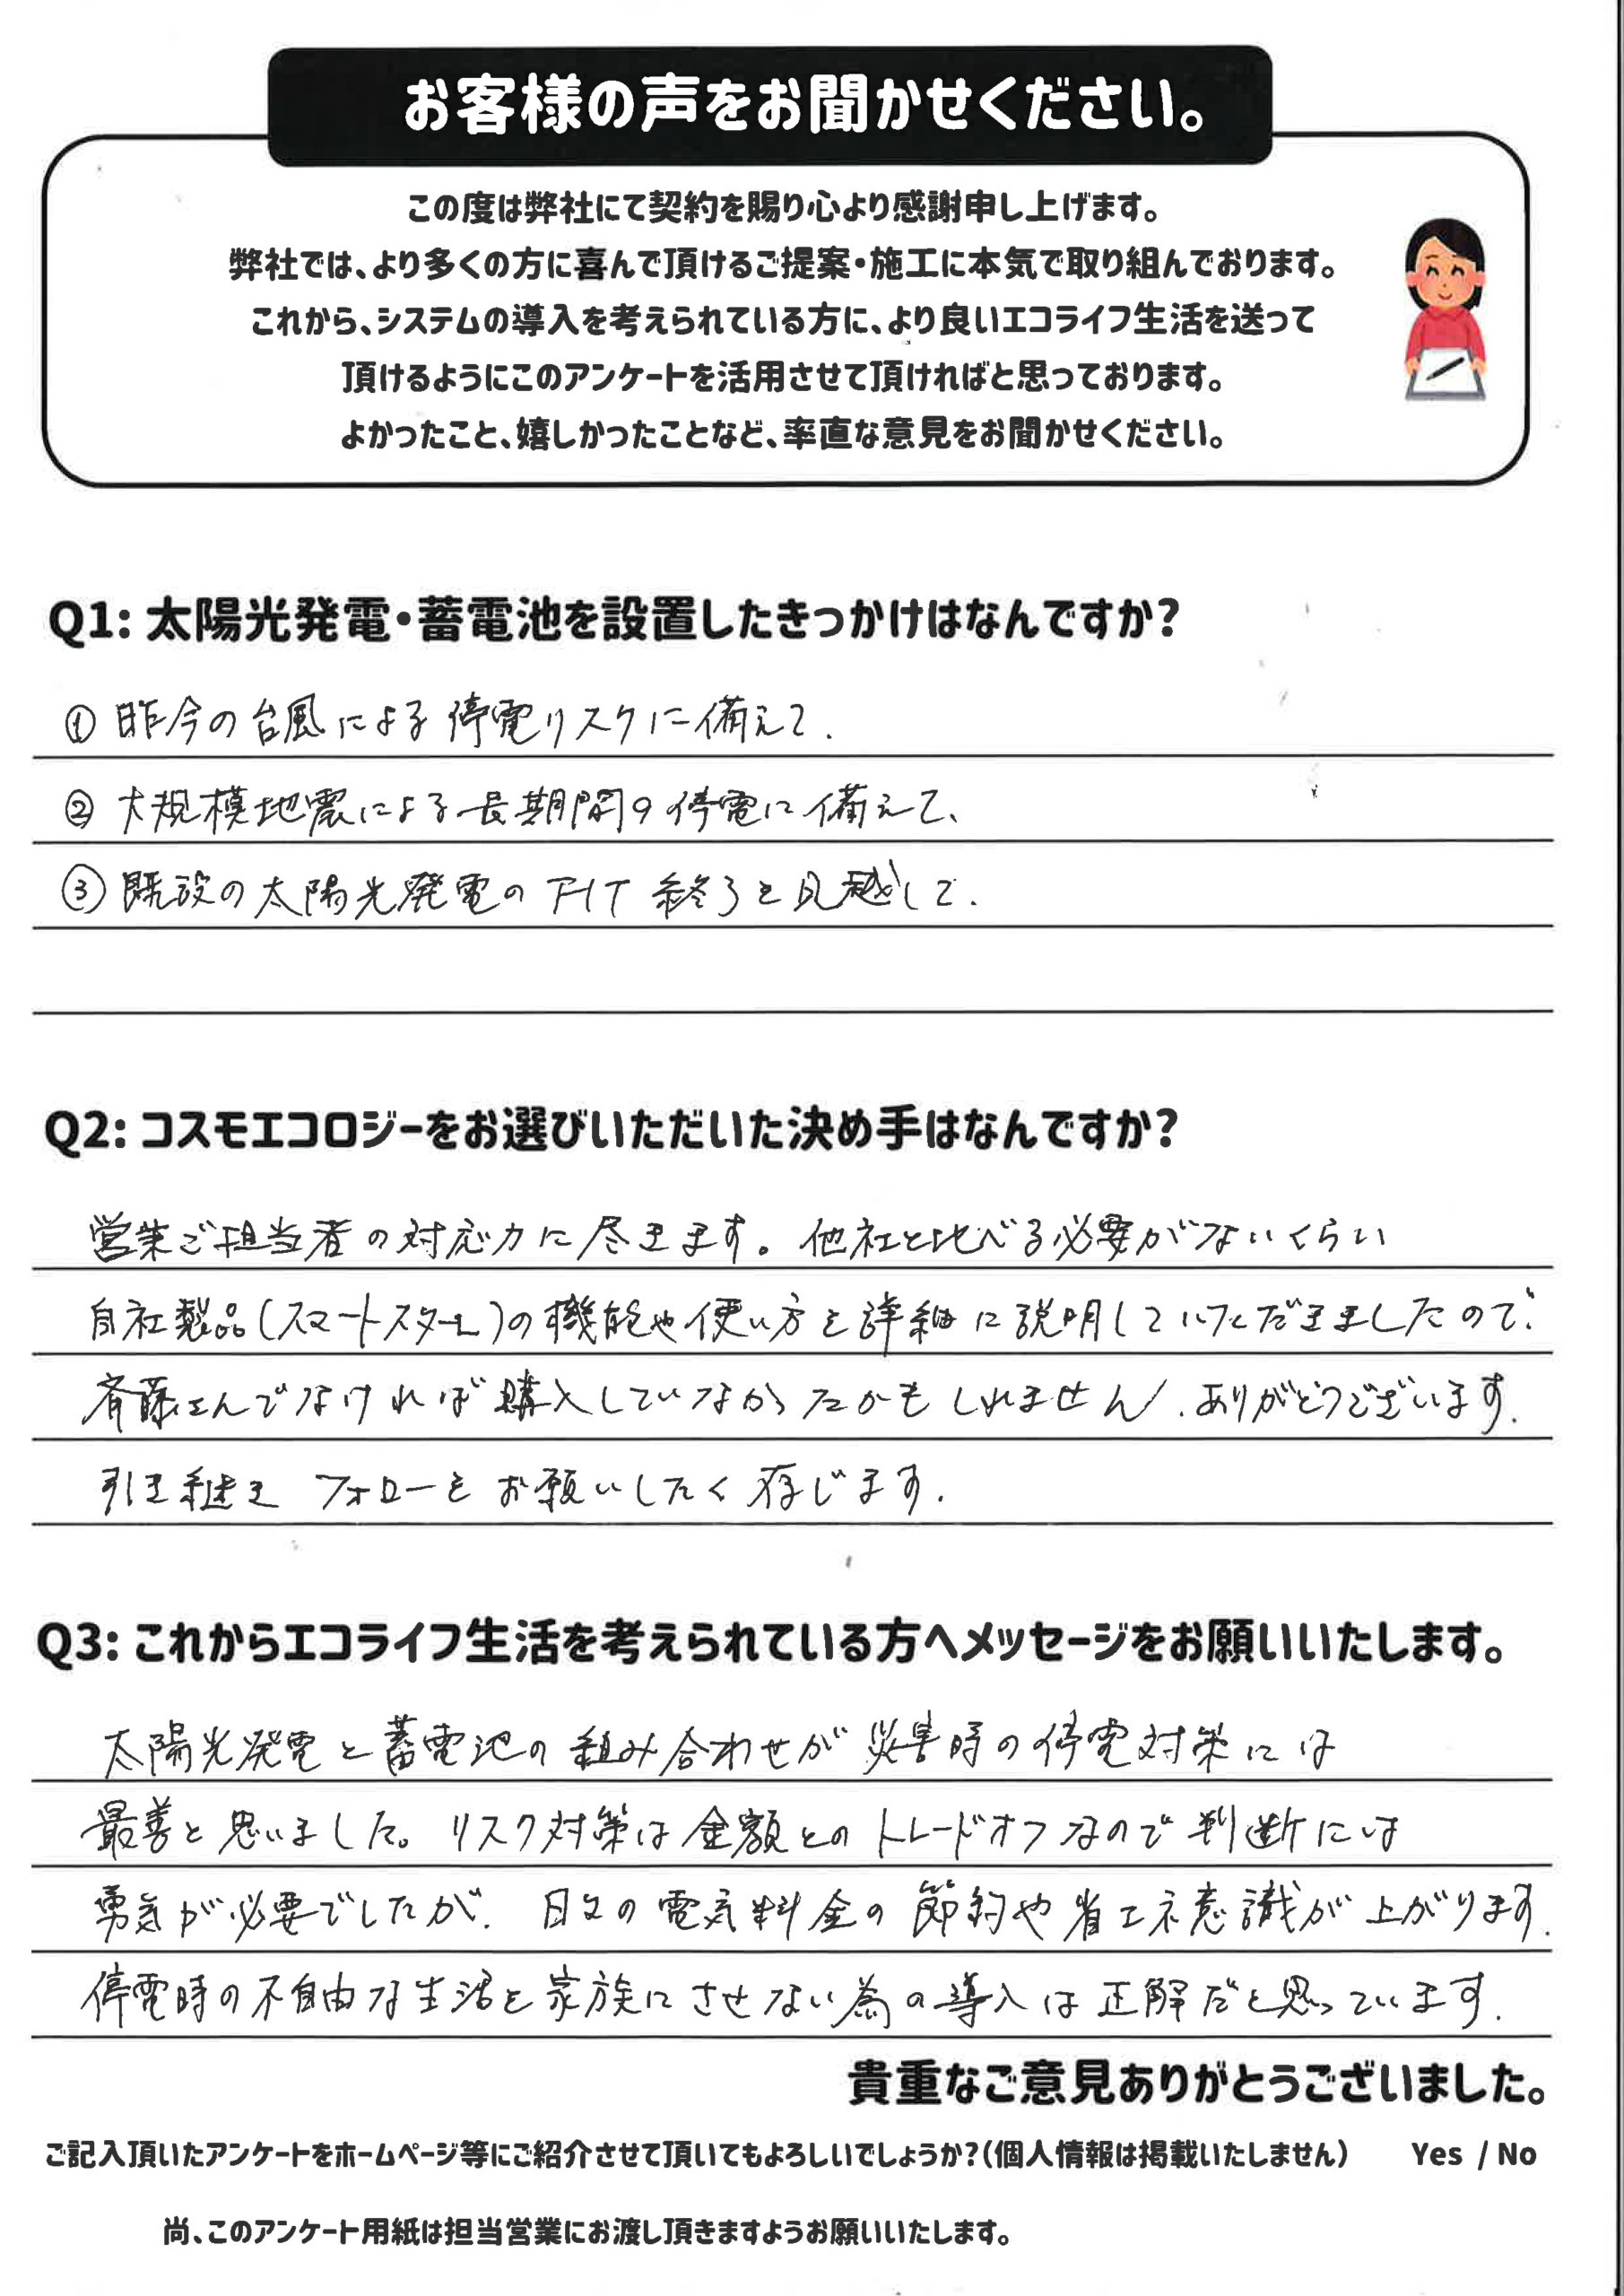 お客様の声をお聞かせください。
この度は弊社にて契約を賜り心より感謝申し上げます。
弊社では、より多くの方に喜んで頂けるご提案・施工に本気で取り組んでおります。
これから、システムの導入を考えられている方に、より良いエコライフ生活を送って
頂けるようにこのアンケートを活用させて頂ければと思っております。
よかったこと、嬉しかったことなど、率直な意見をお聞かせください。
Q1: 太陽光発電・蓄電池を設置したきっかけはなんですか?
① 昨今の台風による停電リスクに備えて.
② 大規模地震による長期間の停電に備えて、
③ 既設の太陽光発電のFIT終了を見越して.
Q2: コスモエコロジーをお選びいただいた決め手はなんですか?
営業ご担当者の対応力に尽きます。他社と比べる必要がないくらい
自社製品(スマートスターL)の機能や使い方を詳細に説明していただきましたので、
斉藤さんでなければ購入していなかったかもしれません.ありがとうございます.
引き継き フォローをお願いしたく存じます.
Q3: これからエコライフ生活を考えられている方へメッセージをお願いいたします。
太陽光発電と蓄電池の組み合わせが災害時の停電対策には
最善と思いました。リスク対策は金額とのトレードオフなので判断には
勇気が必要でしたが、日々の電気料金の節約や省エネ意識が上がります.
停電時の不自由な生活を家族にさせない為の導入は正解だと思っています.
貴重なご意見ありがとうございました。
ご記入頂いたアンケートをホームページ等にご紹介させて頂いてもよろしいでしょうか?(個人情報は掲載いたしません) Yes / No
尚、このアンケート用紙は担当営業にお渡し頂きますようお願いいたします。